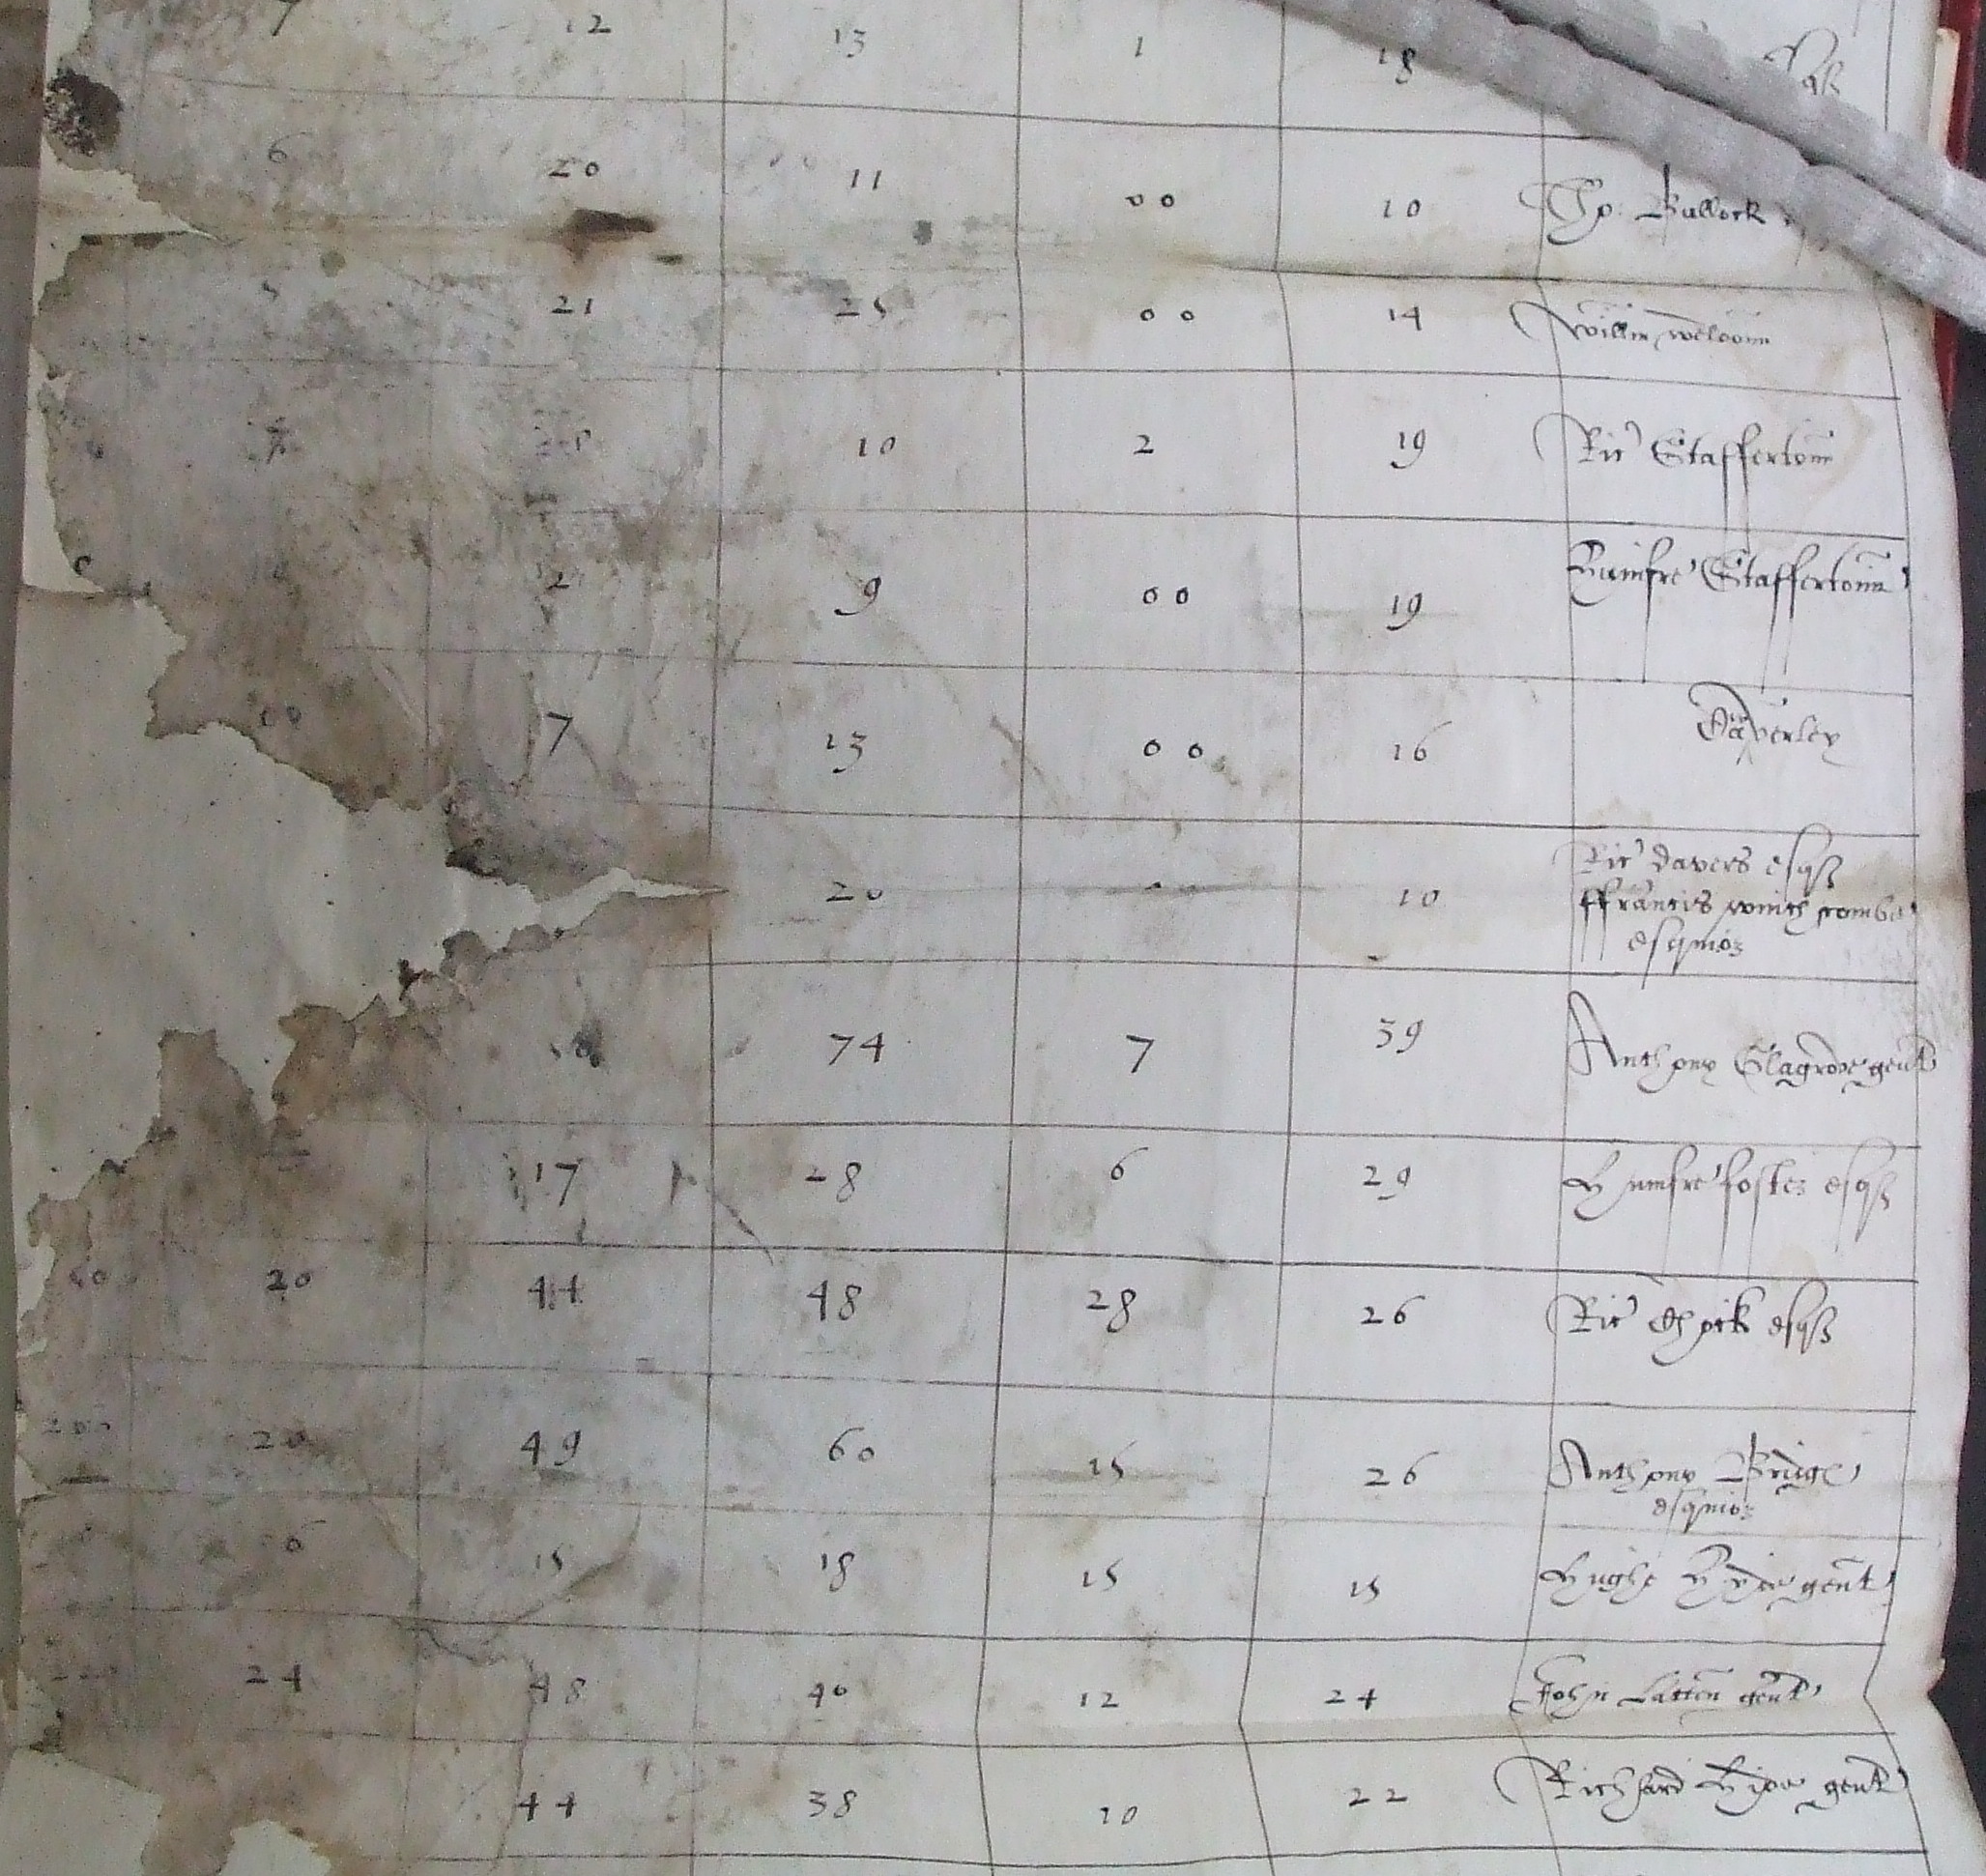 7 12 13 1 18
6 20 11 00 10 Tho. Bullock
21 25 00 14 Willm Weldon
10 2 19 Ric' Staffertonn
2 9 00 19 Humfre Staffertonn
00 7 13 00 16 Waverley
Ric' davers esqr
20 10 ffrancis winchcombe
esquier
74 7 39 Anthony Blagrove gent
17 28 6 29 Humfre foster esqr
20 44 48 28 26 Ric' esqr
200 20 49 60 15 26 Anthony Bridge
esquier
6 15 18 15 15 Hughe Hyde gent
24 48 40 12 24 John Latten gent
44 38 10 22 Richard Hyde gent